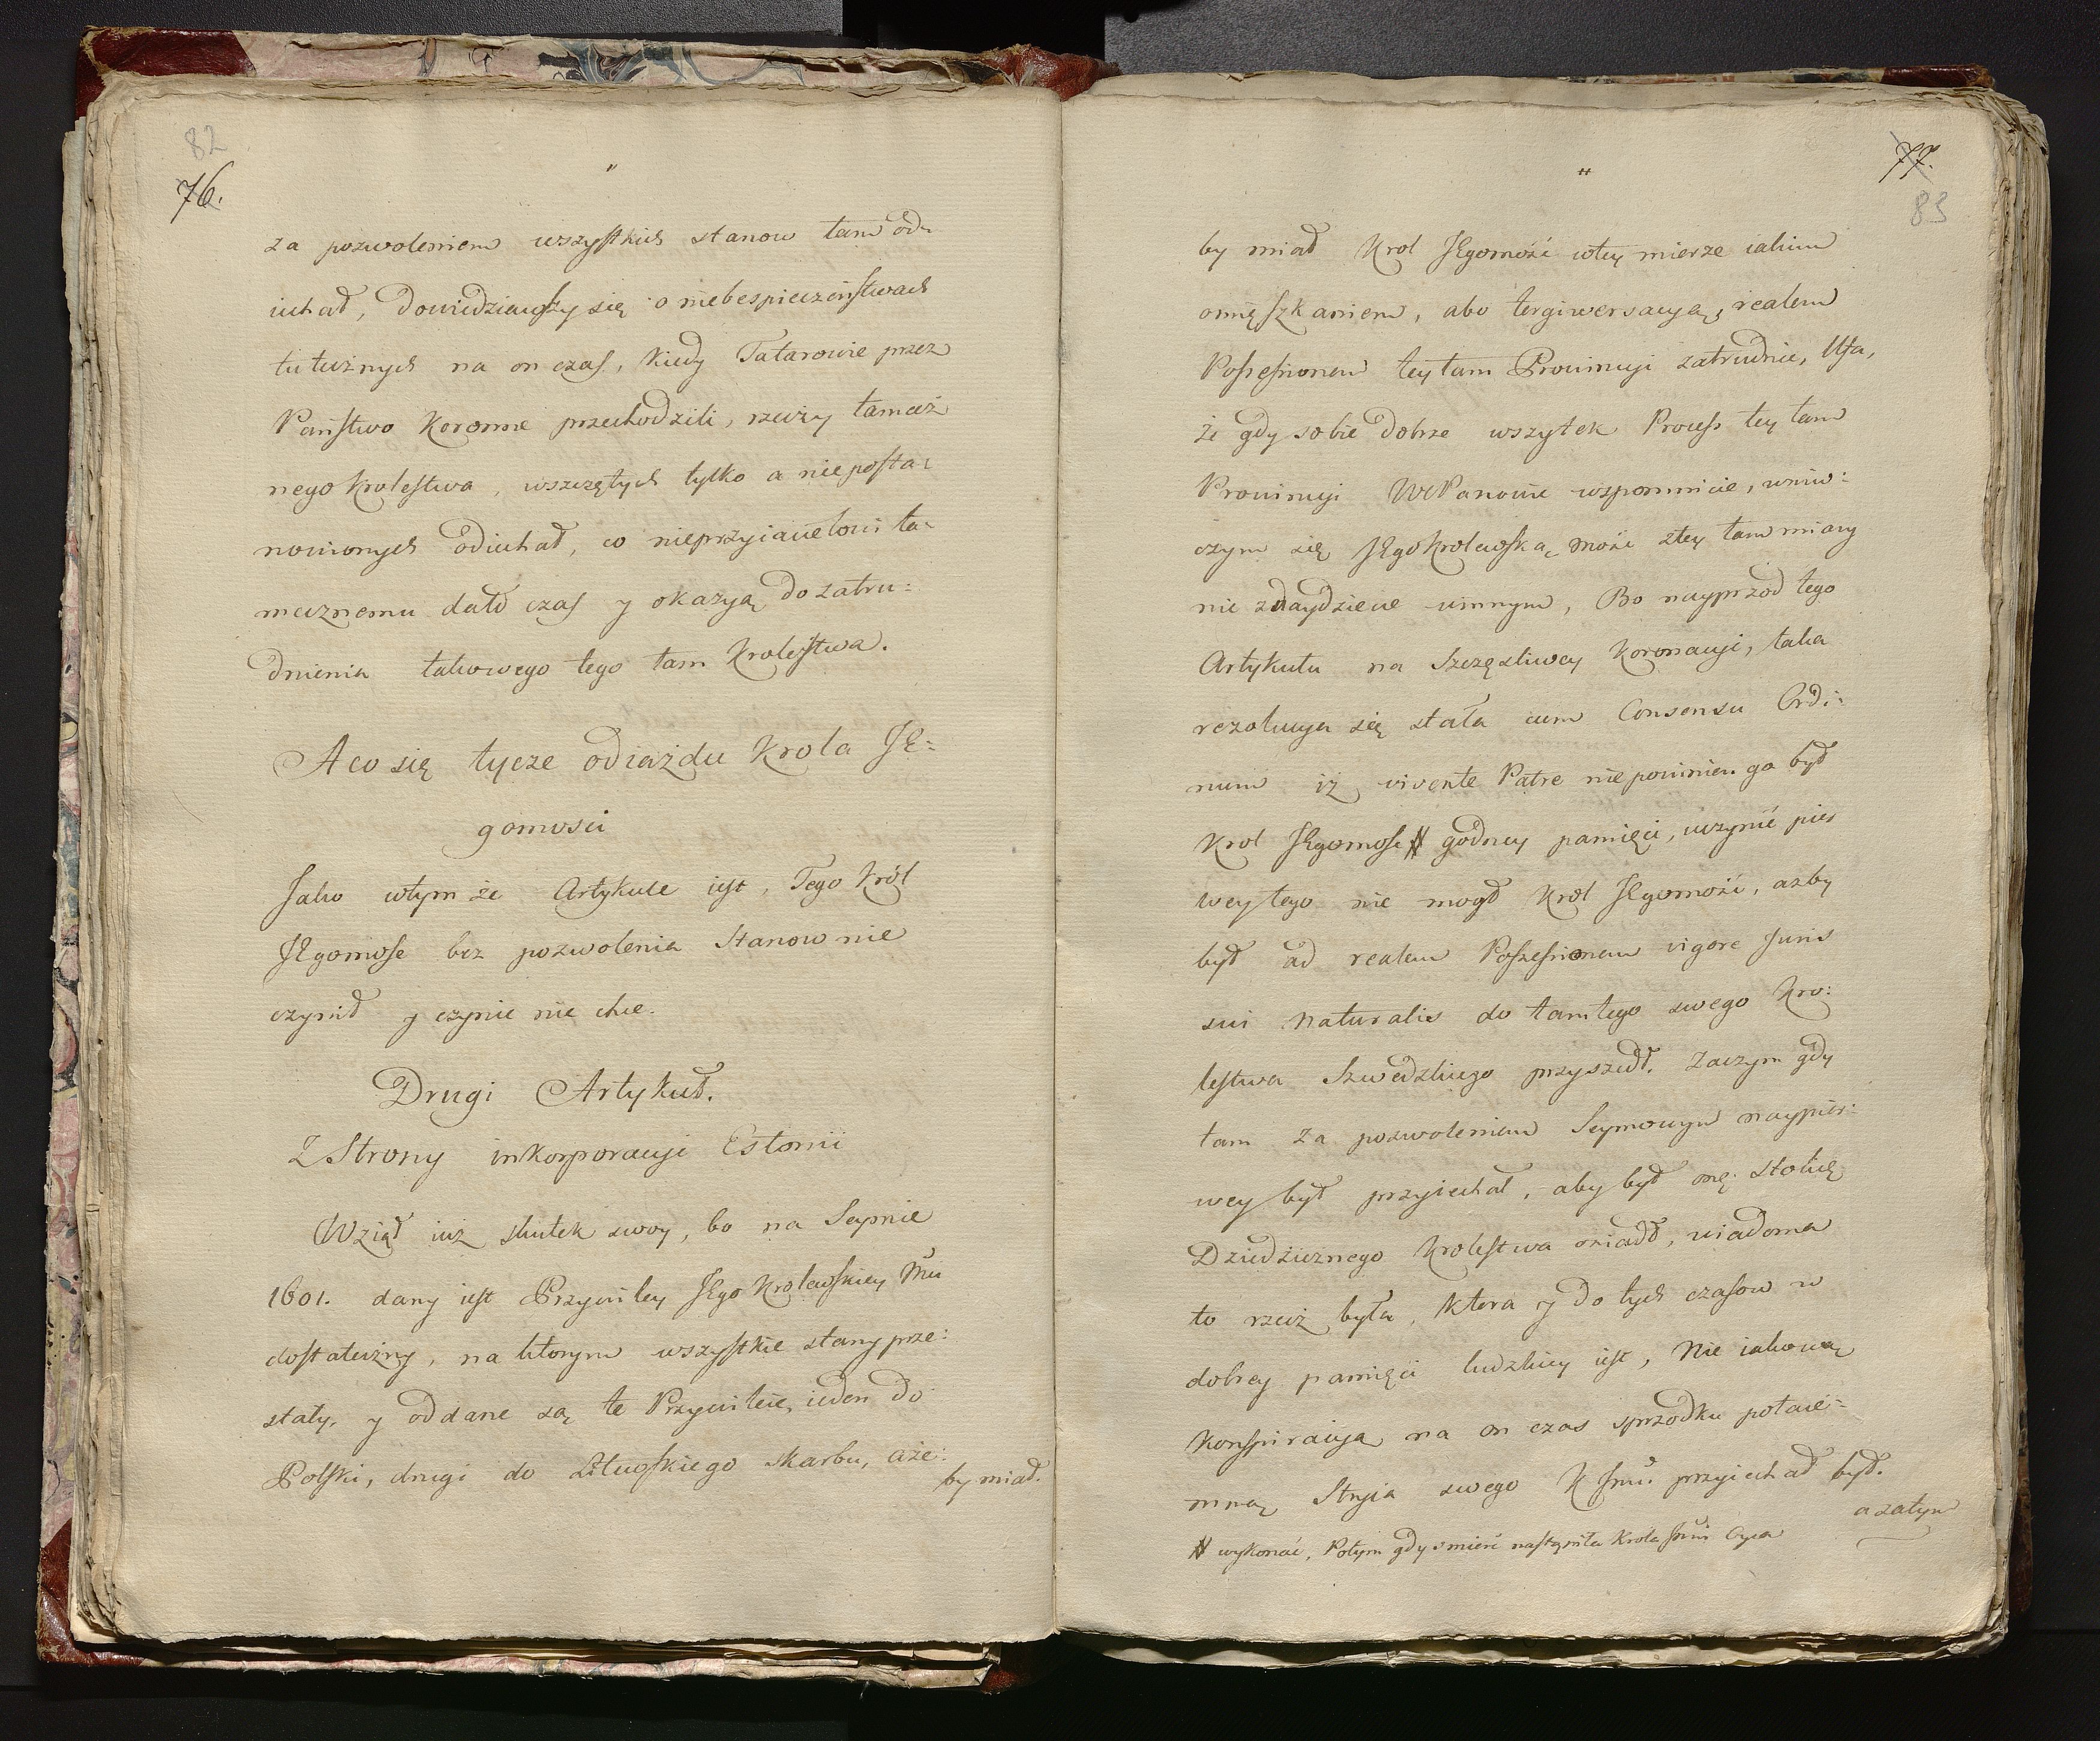 82
76.
"
za pozwoleniem wszystkich stanow tam od=
iechał, Dowiedziawszy się o niebespieczeństwach
tutecznych na on czas, kiedy Tatarowie przez
Państwo Koronne przechodzili, rzeczy tamecz
nego Krolestwa, wszczętych tylko a nieposta=
nowionych odiechał, co nieprzyiacielowi ta=
mecznemu dało czas y okazyą do zatru=
dnienia takowego tego tam Krolestwa.
A co się tycze odiazdu Krola JE=
gomosci
Jako wtym że Artykule iest, Tego Król
JEgomośc bez pozwolenia Stanow nie
czynił y czynic nie chce.
Drugi Artykuł.
Z Strony inkorporacyi Estonii
Wziął iuż skutek swoy, bo na Seymie
1601. dany iest Przywiley JEgo Krolewskiey Mci
dostateczny, na ktorym wszystkie stany prze=
stały, y oddane są te Przywileie, ieden do
Polski, drugi do Litewskiego Skarbu, aże=
by miał.
77.
83
"
by miał Krol JEgomość wtey mierze iakim
omięszkaniem, abo tergiwersacyą, realem
Possessionem tey tam Prowincyi zatrudnic, Ufa,
że gdy sobie dobrze wszytek Process tey tam
Prowincyi WPanowie wspomnicie, wniw=
czym się JEgo Krolewską Mość ztey tam miary
nie znaydziecie winnym, Bo nayprzod tego
Artykułu na Szczęsliwey Koronacyi, taka
rezolucya się stała cum Consensu Ordi=
num iż vivente Patre niepowinien go był
Krol JEgomośc # godney pamięci, uczynić pier
wey tego nie mogł Krol JEgomość, azby
był ad realem Possessionem vigore Juris
sui Naturalis do tamtego swego Kro=
lestwa Szwedzkiego przyszedł. Zaczym gdy
tam za pozwoleniem Seymowym naypier=
wey był przyiechał, aby był onę stolicę
Dziedzicznego Krolestwa osiadł, wiadoma
to rzecz była, ktora y do tych czasow w
dobrey pamięci ludzkiey iest, Nie iakową
Konspiracyą na on czas sprzodku potaie=
mną Stryia swego K Jmć. przyiechał był.
a zatym
# wykonać, Potym gdy smierć nastąpiła Krola Jmci Oyca